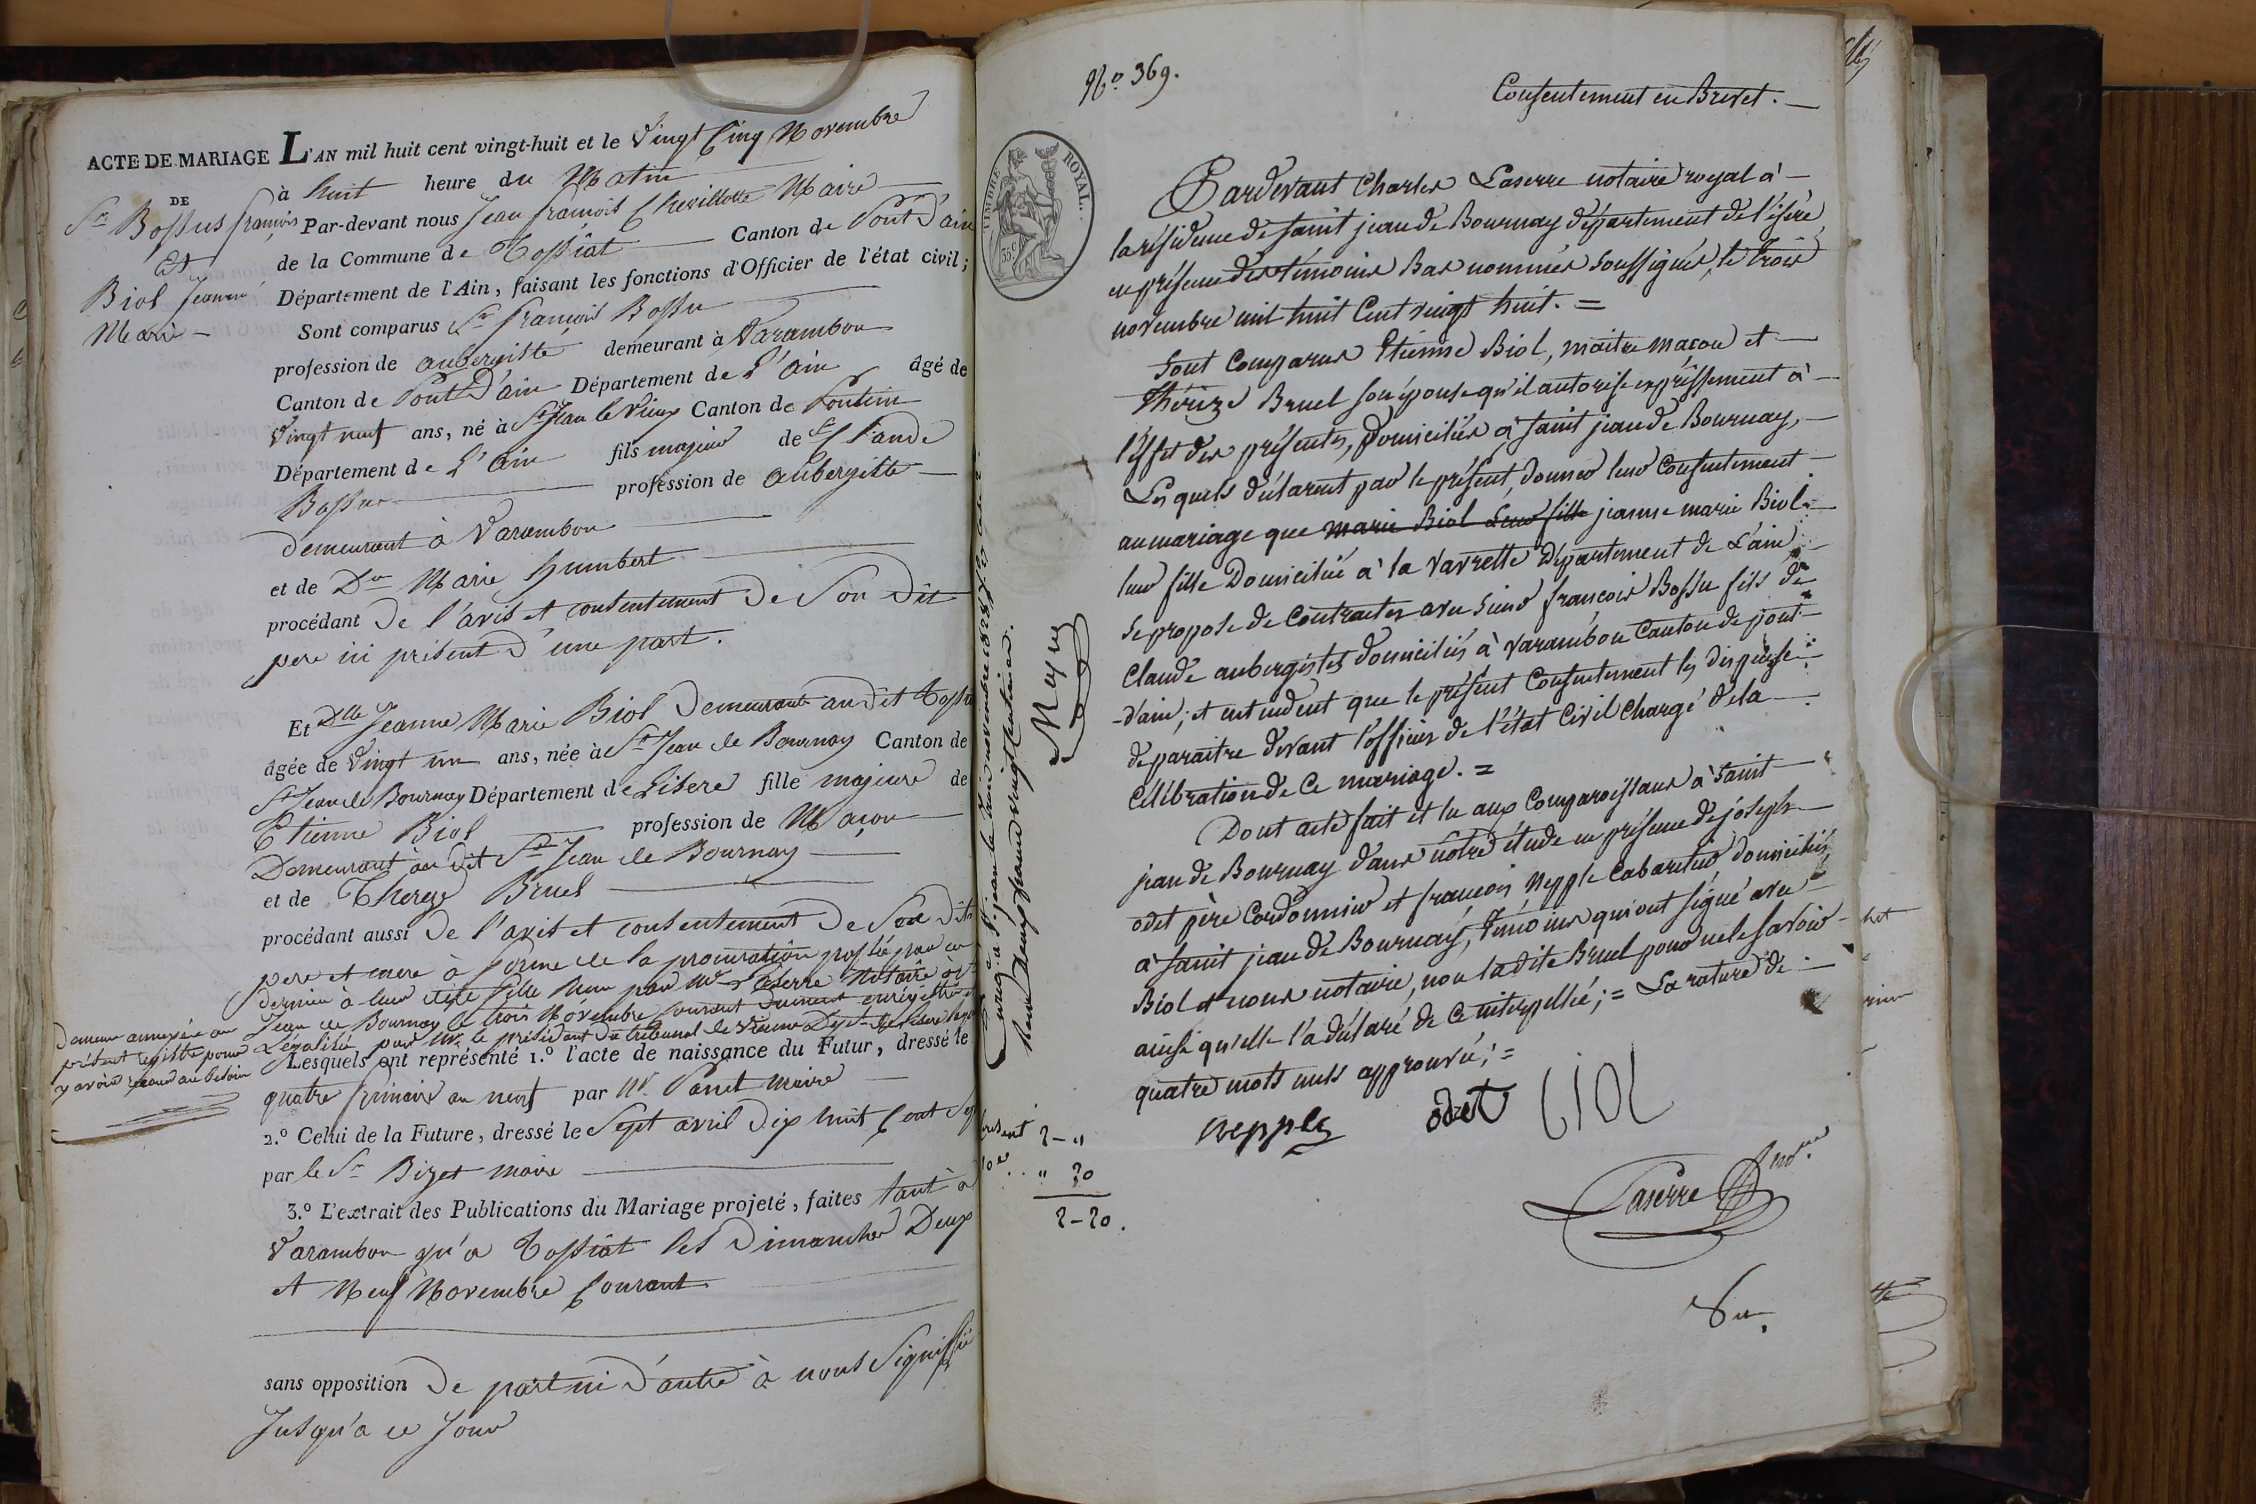 ACTE DE MARIAGE L'AN mil huit cent vingt-huit et le vingt Cinq Novembre
à huit heure du Matin
DE
Sr Bossus françois
Et
Biol Jeanne
Marie
Par-devant nous Jean françois Chevillotte Maire
de la Commune de Tossiat Canton de Pont d'ain
Département de l'Ain, faisant les fonctions d'Officier de l'état civil;
Sont comparus Sr françois Bossu
profession de aubergiste demeurant à Varambon
Canton de Pont d'ain Département de L'ain âgé de
vingt neuf ans, né à St Jean le Vieux Canton de Poncin
Département de L'ain fils majeur de Sr Claude
Bossu profession de aubergiste
demeurant à Varambon
et de De Marie humbert
procédant De l'avis et consentement De Son Dit
pere ici présent D'une part.
Et Dlle Jeanne Marie Biol Demeurant audit Toss
âgée de vingt un ans, née à St Jean de Bournay Canton de
St Jean de Bournay Département de Lisere fille majeure de
Etienne Biol profession de Maçon
Demeurant au dit St Jean de Bournay
et de Thereze Bruel
procédant aussi De l'avis et consentement De Son dit
pere et mere à forme de la procuration passée par ce
dernier à leur dite fille par Mr Laserre Notaire à St
Jean de Bournay le trois Novembre courant duement enregistré et
Légalisé par Mr le président du tribunal de vienne
Demeure annexée au
présent registre pour
y avoir recours au besoin
Lesquels ont représenté 1.º l'acte de naissance du Futur, dressé le
quatre frimaire an neuf par Mr Panet maire
2.º Celui de la Future, dressé le Sept avril Dix huit Cent Sep
par le Sr Bizet maire
3.º L'extrait des Publications du Mariage projeté, faites tant à
Varambon qu'a Tossiat les Dimanches Deux
et Neuf Novembre Courant
sans opposition De part ni D'autre à nous Signiffié
Jusqu'a ce Jour
No. 369.
Consentement en Brevet.
TIMBRE ROYAL.
35 C
Pardevant Charles Laserre notaire royal à
la résidence de saint jean de Bournay département de l'isère
en présence des témoins Bas nommés soussignés, le trois
novembre mil huit Cent vingt huit. =
Sont Comparus Etienne Biol, maitre macon et
Thérèze Bruel son épouse qu'il autorise expréssement à
l'Effet des présentes, domiciliés à saint jean de Bournay,
Lesquels déclarent par le présent, donner leur Consentement
au mariage que marie Biol leur fille jeanne marie Biol
leur fille Domiciliée à la vavrette Département de L'ain
se propose de Contracter avec sieur francois Bossu fils de
Claude aubergistes domiciliés à varambon Canton de pont
-d'ain; et entendent que le présent Consentement les dispense
de paraitre devant l'officier de l'état Civil chargé de la
Célébration de Ce mariage. =
Dont acte fait et lu aux Comparoissans à saint
jean de Bournay dans notre étude en présence de joseph
odet père Cordonnier et francois Nepple Cabaretier domiciliés
à saint jean de Bournay, témoins qui ont signé avec
Biol et nous notaire, non ladite Bruel pour ne le savoir
ainsi qu'elle l'a déclaré de Ce interpellée; = La rature de
quatre mots nuls approuvée; =
nepple odet biol
Laserre nore
Enregé à St jean le Trois novembre 1828
Recu deux francs vingt centimes.
Mayer
2 - "
" 20
2 - 20.